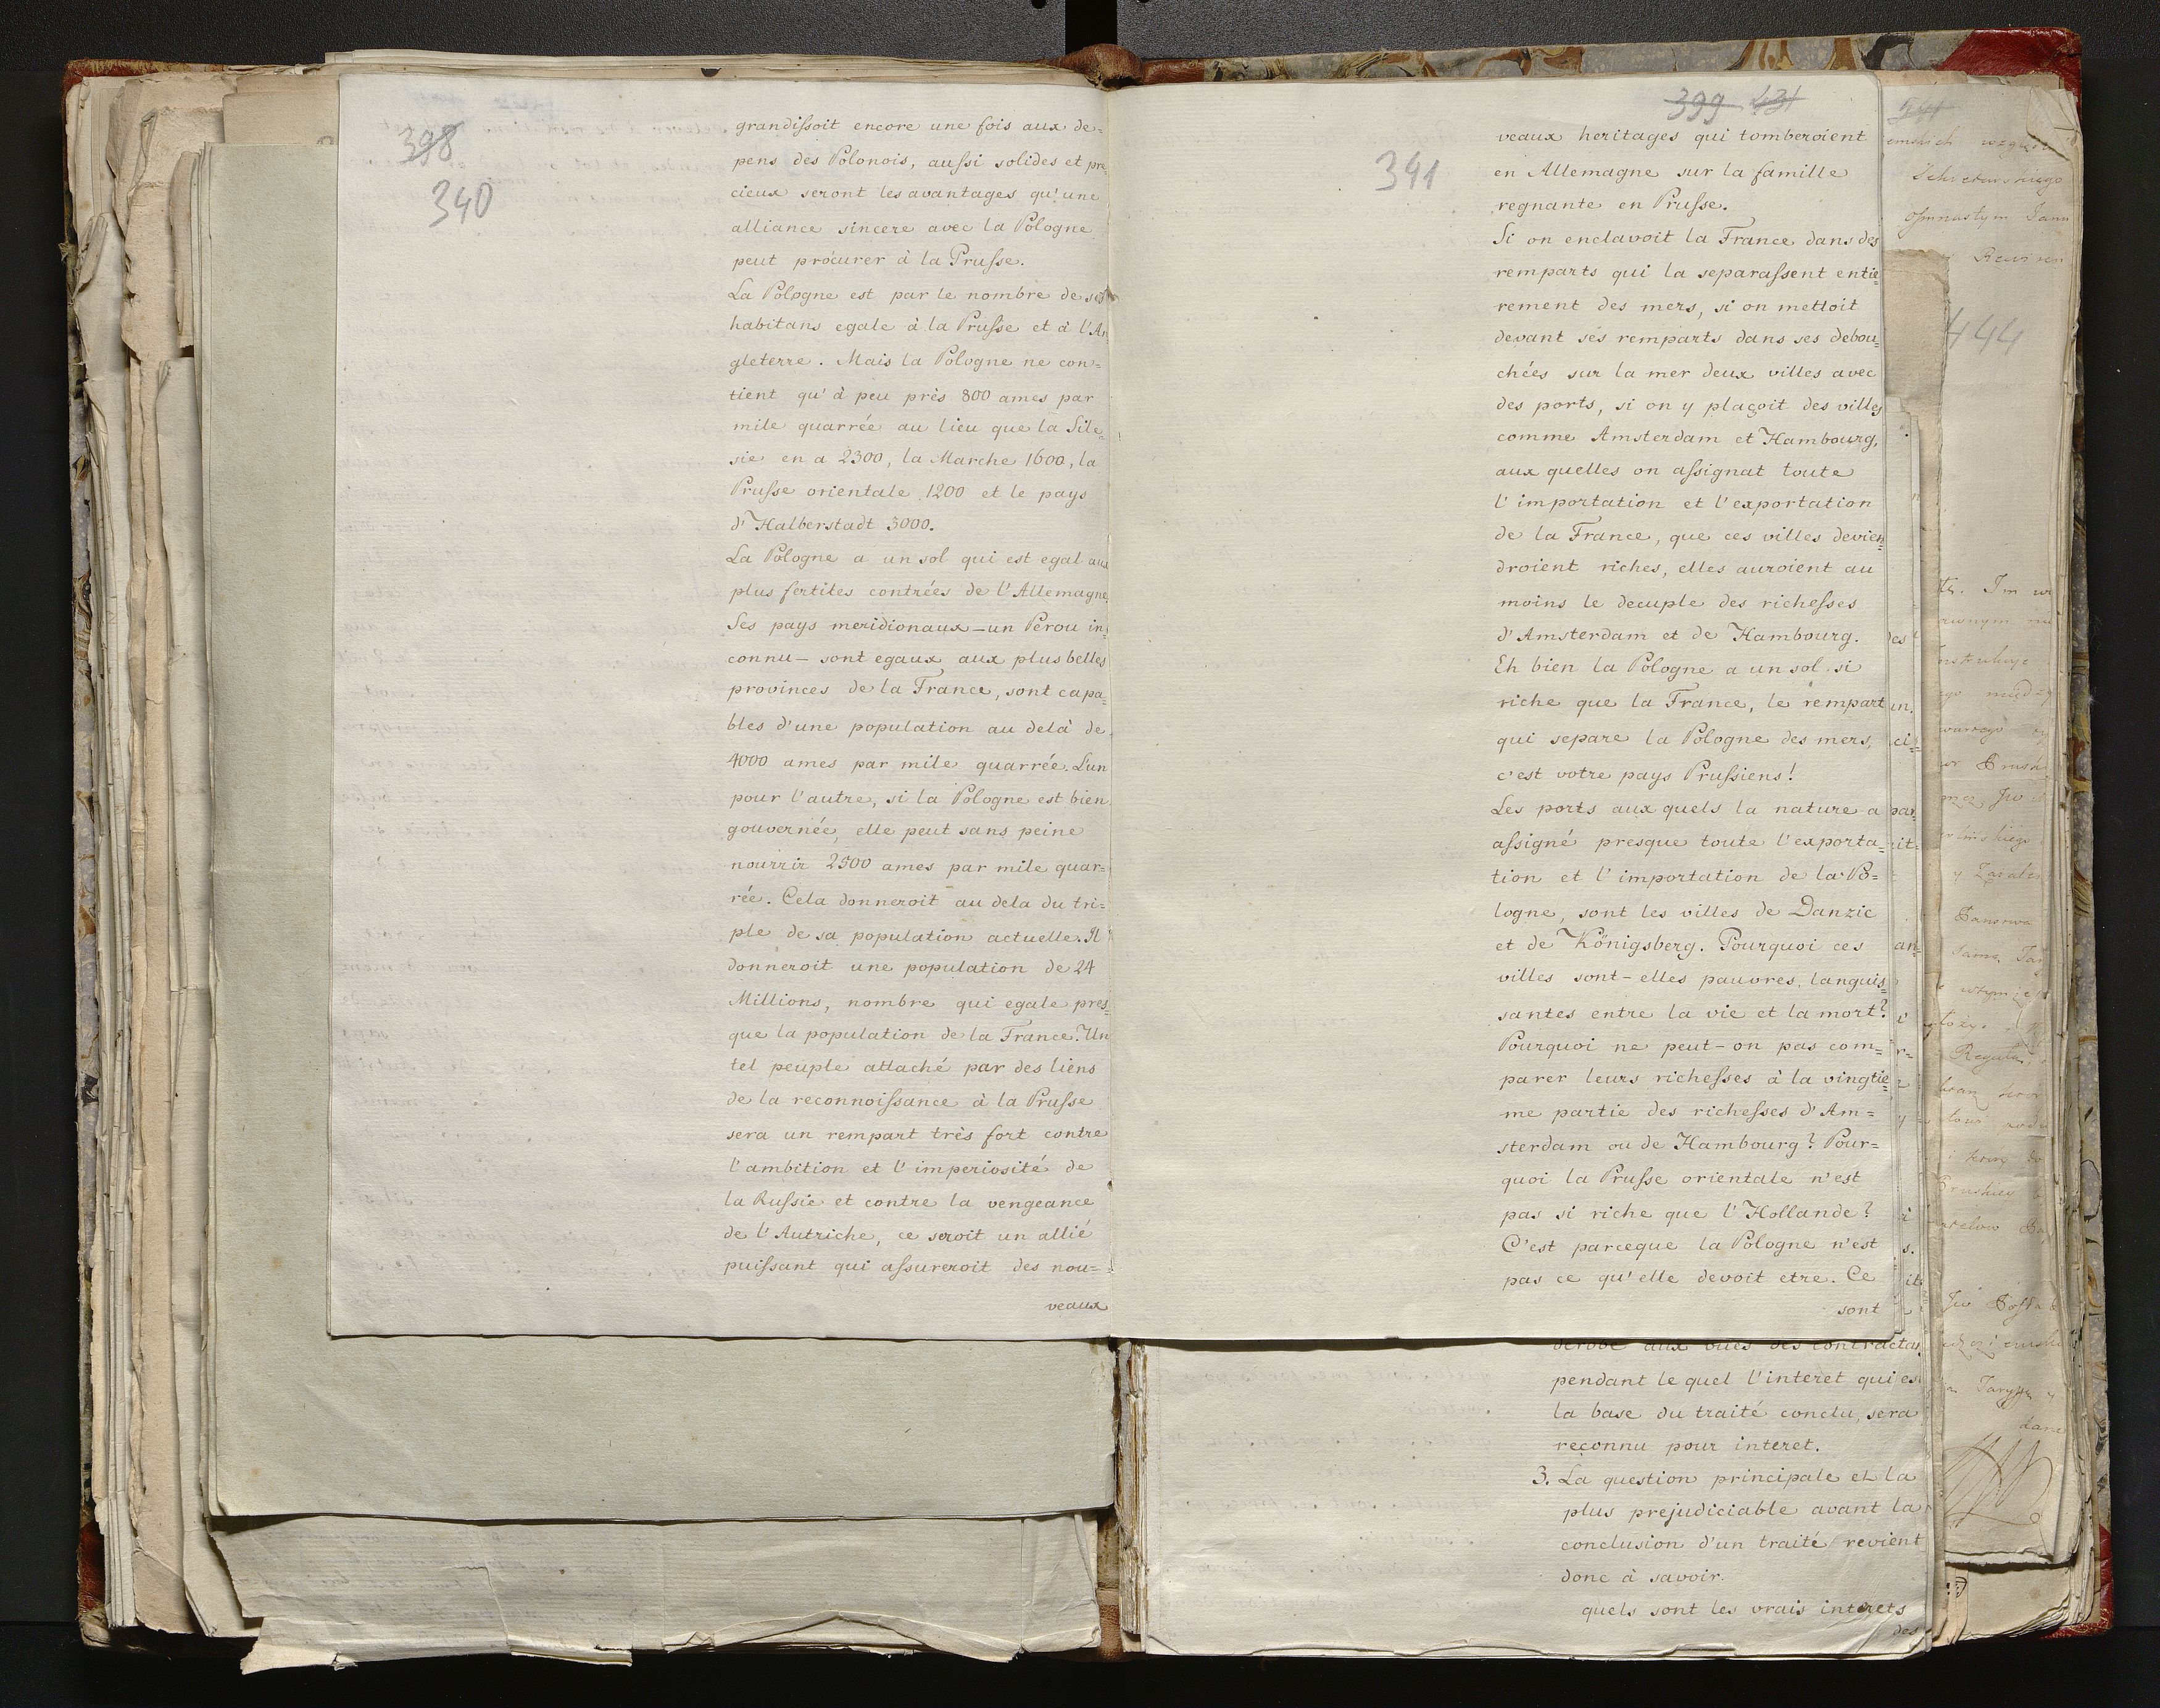 398
340
grandissoit encore une fois aux de=
pens des Polonois, aussi solides et pre=
cieux seront les avantages qu'une
alliance sincere avec la Pologne
peut procurer à la Prusse.
La Pologne est par le nombre de ses
habitans egale à la Prusse et à l'An
gleterre. Mais la Pologne ne con=
tient qu'à peu près 800 ames par
mile quarrée au lieu que la Sile=
sie en a 2300, la Marche 1600, la
Prusse orientale 1200 et le pays
d'Halberstadt 3000.
La Pologne a un sol qui est egal aux
plus fertiles contrées de l'Allemagne
Ses pays meridionaux - un Perou in=
connu - sont egaux aux plus belles
provinces de la France, sont capa=
bles d'une population au delà de
4000 ames par mile quarrée. L'un
pour l'autre, si la Pologne est bien
gouvernée, elle peut sans peine
nourrir 2500 ames par mile quar=
rée. Cela donneroit au dela du tri=
ple de sa population actuelle. Il
donneroit une population de 24
Millions, nombre qui egale pres=
que la population de la France. Un
tel peuple attaché par des liens
de la reconnoissance à la Prusse
sera un rempart très fort contre
l'ambition et l'imperiosité de
la Russie et contre la vengeance
de l'Autriche, ce seroit un allié
puissant qui assureroit des nou=
veaux
399 431
341
veaux heritages qui tomberoient
en Allemagne sur la famille
regnante en Prusse.
Si on enclavoit la France dans des
remparts qui la separassent entie=
rement des mers, si on mettoit
devant ses remparts dans ses debou=
chées sur la mer deux villes avec
des ports, si on y plaçoit des villes
comme Amsterdam et Hambourg,
aux quelles on assignat toute
l'importation et l'exportation
de la France, que ces villes devien=
droient riches, elles auroient au
moins le decuple des richesses
d'Amsterdam et de Hambourg.
Eh bien la Pologne a un sol si
riche que la France, le rempart
qui separe la Pologne des mers,
c'est votre pays Prussiens!
Les ports aux quels la nature a
assigné presque toute l'exporta=
tion et l'importation de la Po=
logne, sont les villes de Danzic
et de Königsberg. Pourquoi ces
villes sont-elles pauvres, languis=
santes entre la vie et la mort?
Pourquoi ne peut-on pas com=
parer leurs richesses à la vingtie=
me partie des richesses d'Am=
sterdam ou de Hambourg? Pour=
quoi la Prusse orientale n'est
pas si riche que l'Hollande?
C'est parceque la Pologne n'est
pas ce qu'elle devoit etre. Ce
sont
pendant le quel l'interet qui es
la base du traité conclu, sera
reconnu pour interet.
3. La question principale et la
plus prejudiciable avant la
conclusion d'un traité revient
donc à savoir.
quels sont les vrais interets
des
444